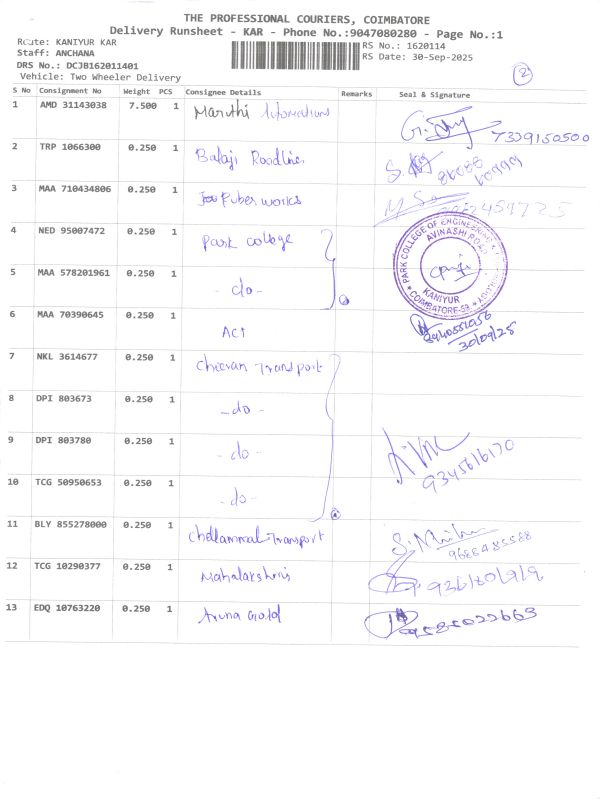 THE PROFESSIONAL COURIERS, COIMBATORE
Delivery Runsheet - KAR - Phone No.:9047080280 - Page No.:1
Route: KANIYUR KAR
RS No.: 1620114
Staff: ANCHANA
RS Date: 30-Sep-2025
DRS No.: DCJB162011401
Vehicle: Two Wheeler Delivery
2
S No Consignment No Weight PCS Consignee Details Remarks Seal & Signature
1 AMD 31143038 7.500 1 Maruthi
7339150500
2 TRP 1066300 0.250 1 Balaji Roadlines
3 MAA 710434806 0.250 1 works
4 NED 95007472 0.250 1 Park college
PARK COLLEGE OF ENGINEERING
AVINASHI ROAD
KANIYUR
COIMBATORE-59
5 MAA 578201961 0.250 1 - do -
6 MAA 70390645 0.250 1 ACT
30/09/25
7 NKL 3614677 0.250 1 Cheeran Transport
8 DPI 803673 0.250 1 - do -
9 DPI 803780 0.250 1 - do -
9345616170
10 TCG 50950653 0.250 1 - do -
11 BLY 855278000 0.250 1 Chellammal Transport
9688485588
12 TCG 10290377 0.250 1 Mahalakshmi
13 EDQ 10763220 0.250 1 Aruna Gold